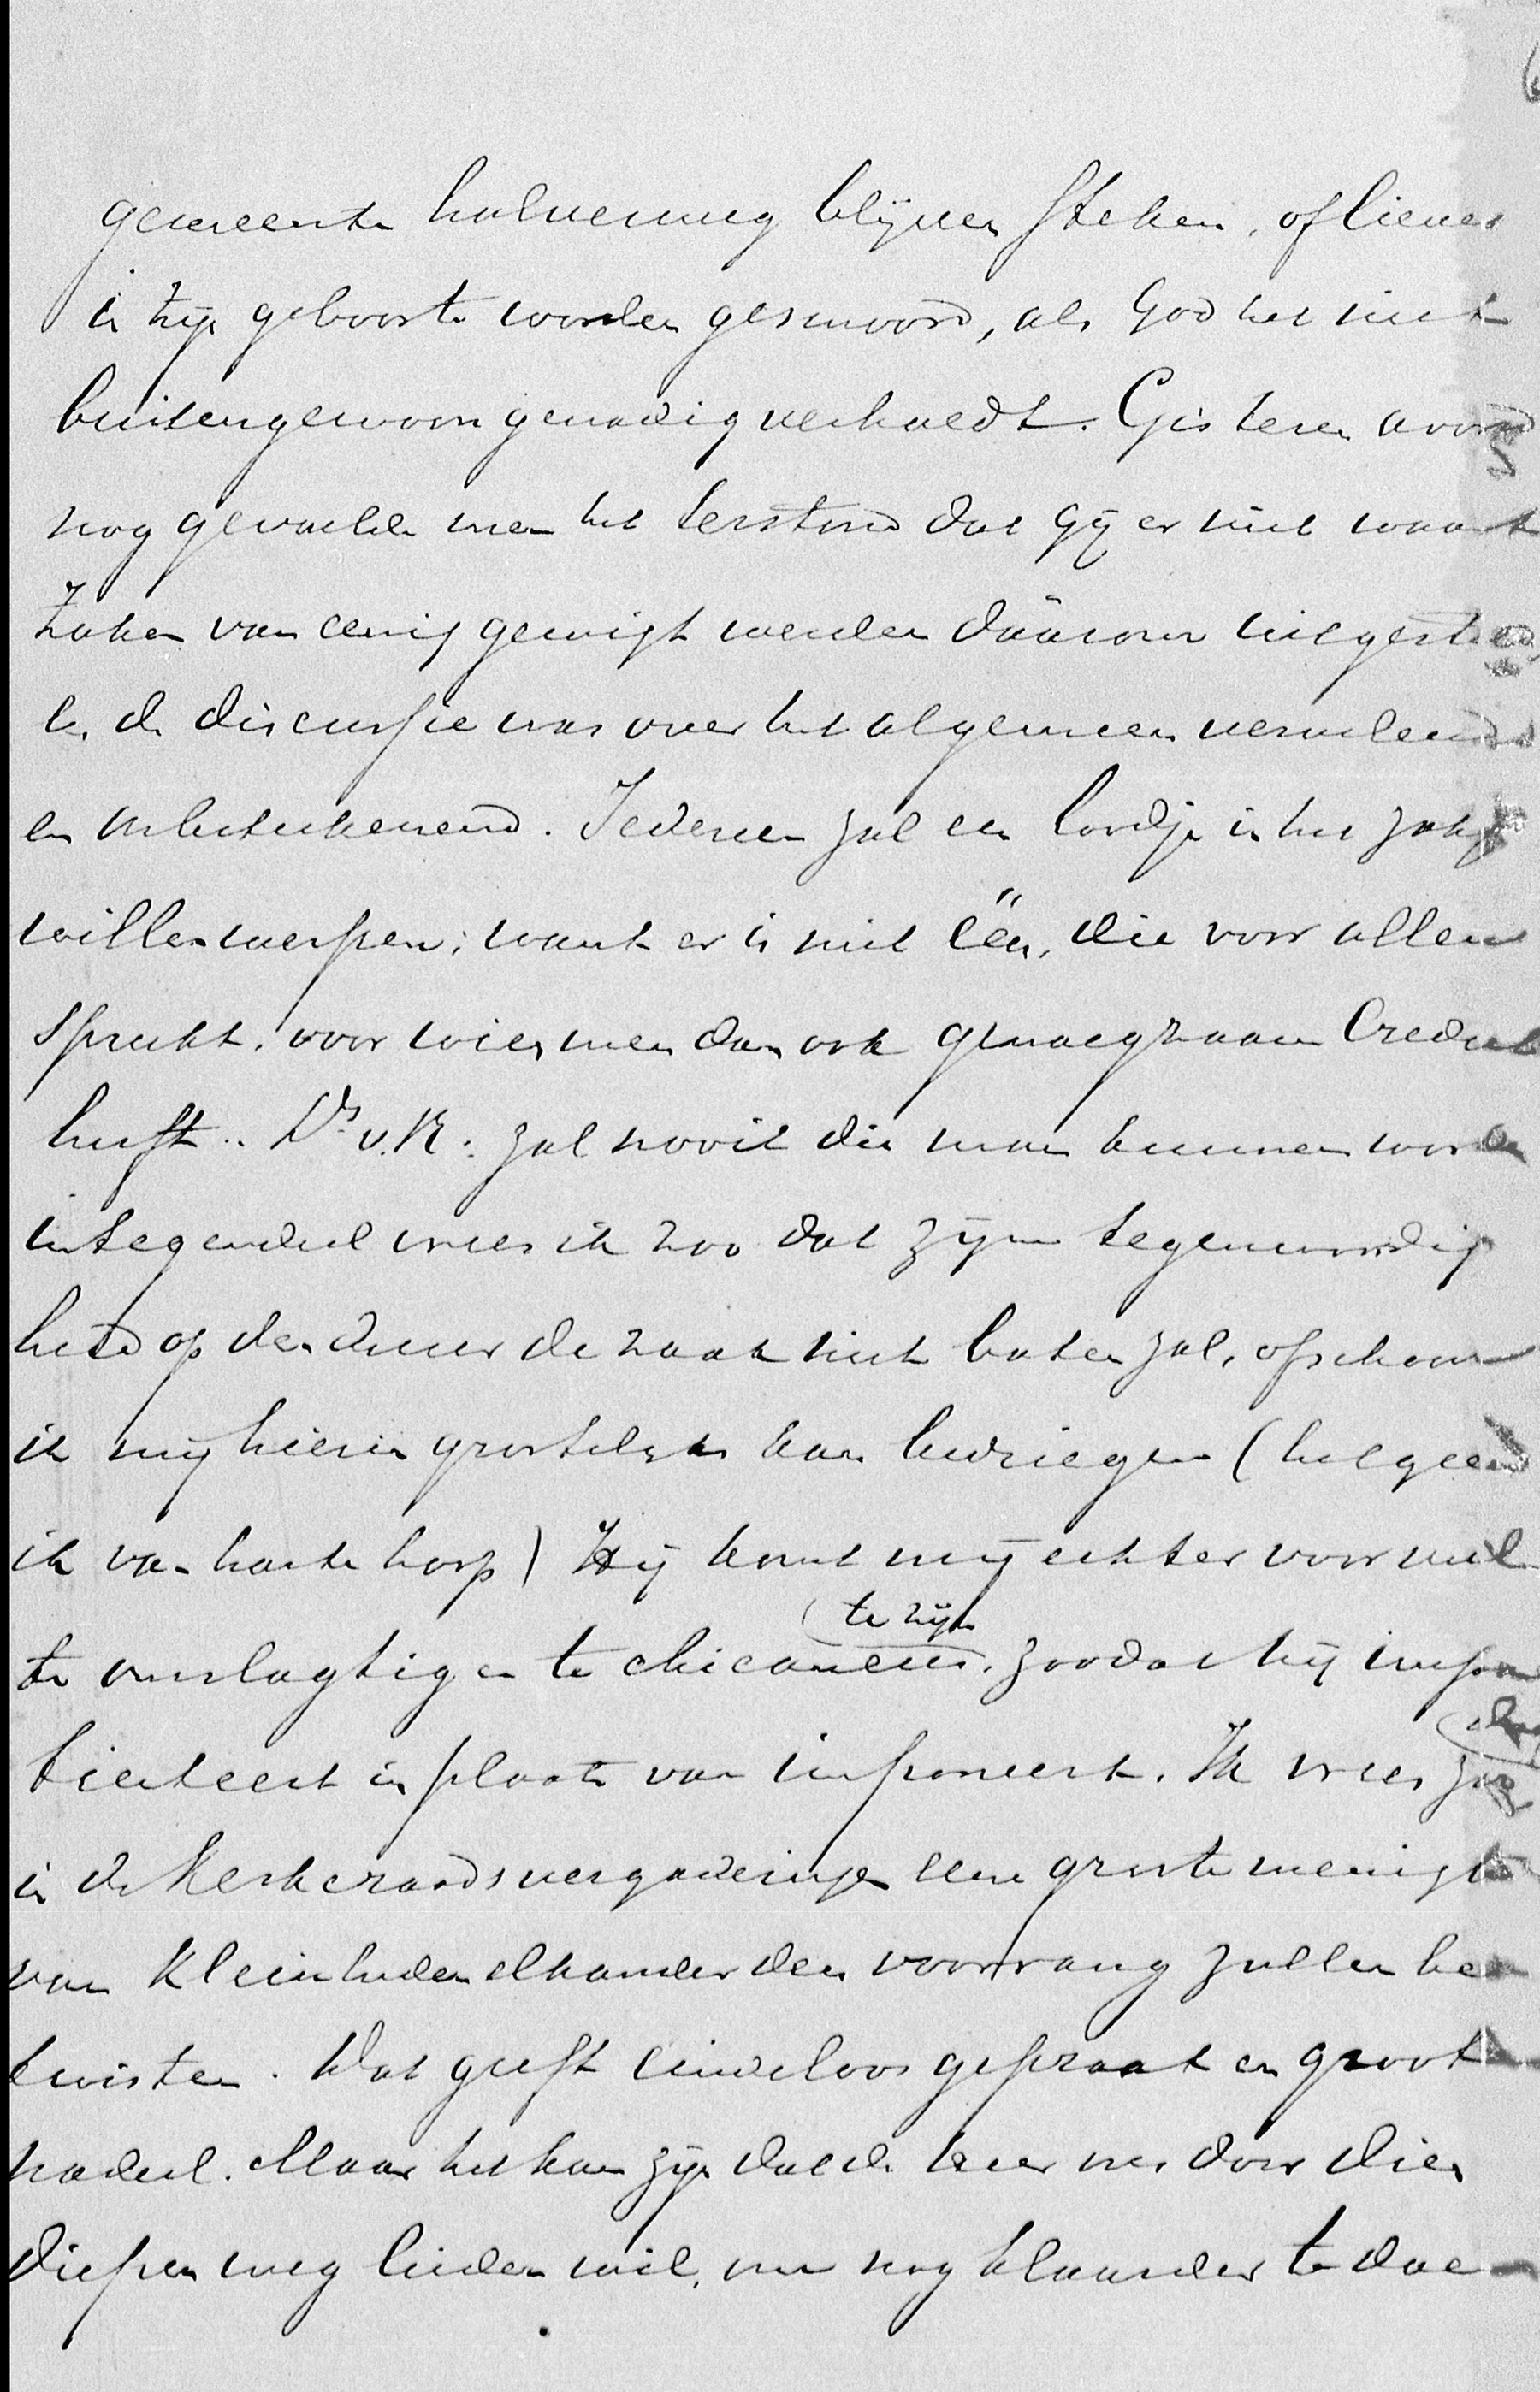 gemeente halverweg blijven steken, of liever
in hŷr geboorte worden gesmoord, als God het niet
buitengewoon genadig verhoedt. Gisteren avond
nog gevoelde men het terstond dat gij er niet waart
Zaken van eenig gewigt werden dáárom uitgesteld
en de discussie was over het algemeen vervelend
en onbeteekenend. Iedereen zal een loodje in het zakje
willen werpen; want er is niet één, die voor allen
spreekt, voor wien men dan ook genoegzaam Crediet
heeft. Ds. v. R: zal nooit die man kunnen worden
integendeel vrees ik zoo dat zijne tegenwoordig
heid op den duur de zaak niet baten zal, ofschoon
ik mij hierin grootelyks kan bedriegen (hetgeen
ik van harte hoop) Hij komt mij echter voor veel
te omslagtig en te chicaneus te zijn, zoodat hij impa
tienteert in plaats van imponeert. Ik vrees dat
in de Kerkeraadsvergaderingen eene groote menigte
van Kleinheden elkander den voorrang zullen be
twisten. Dat geeft eindeloos gepraat en groot
nadeel. Maar het kan zijn dat de Heer ons door dien
diepen weg leiden wil, om nog klaarder te doen